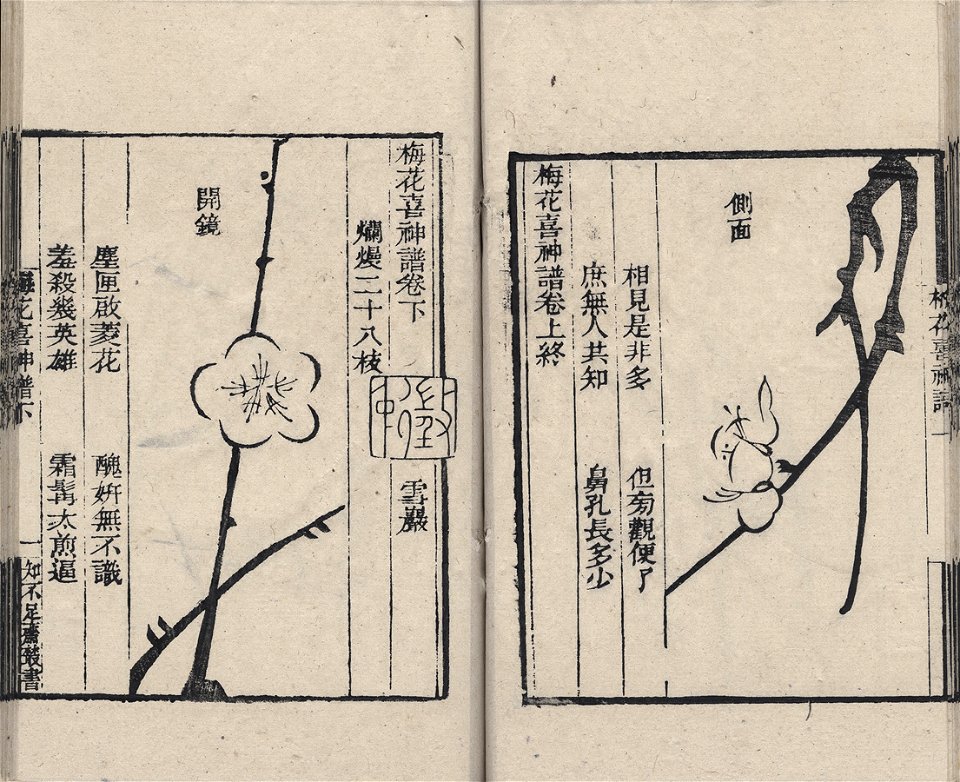 梅花喜神譜
側面
相見是非多 但旁觀便了
庶無人共知 鼻孔長多少
梅花喜神譜卷上終
梅花喜神譜卷下 雪巖
爛熳二十八枝
開鏡
塵匣啟菱花 醜姸無不識
羞殺幾英雄 霜髯太煎逼
梅花喜神譜下 一 知不足齋叢書